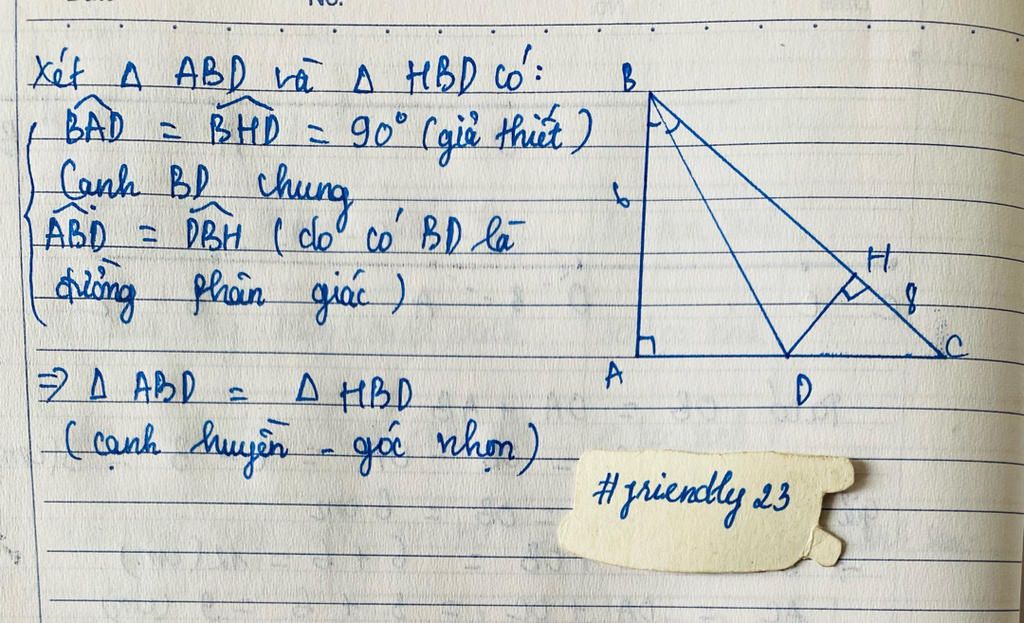 No.
Xét Δ ABD và Δ HBD có:
BAD = BHD = 90° (giả thiết)
Cạnh BD chung
ABD = DBH (do có BD là
đường phân giác)
⇒ Δ ABD = Δ HBD
(cạnh huyền - góc nhọn)
B
6
H
8
A
D
C
#friendly23